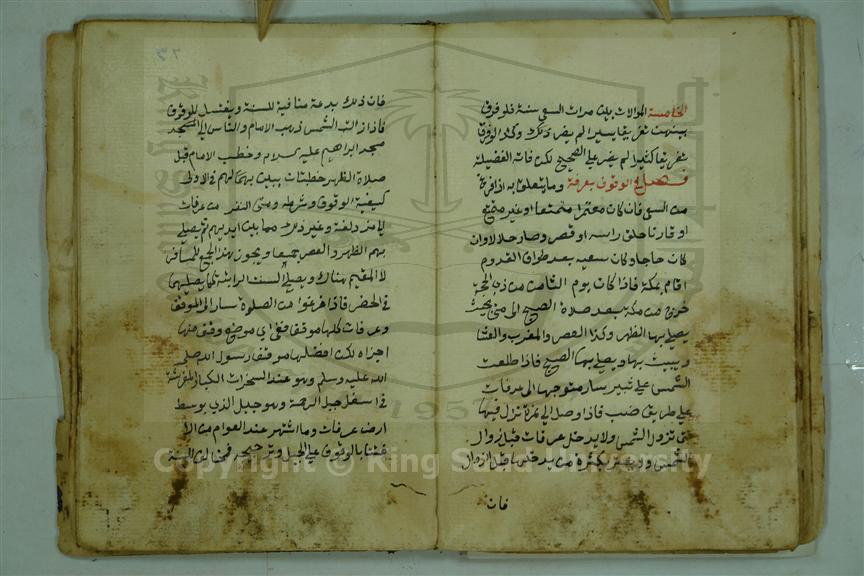 الخامسة الموالات بين مرات السعي سنة فلو فرق
بينهن تفريقا يسيرا لم يضر وذلك وكذا لو فرق
تفريقا كثيرا لم يضر على الصحيح لكن فاته الفضيلة
فصل في الوقوف بعرفة وما يتعلق به اذا فرغ
من السعي فان كان معتمرا متمتعا او غير متمتع
او قارنا حلق راسه او قصر وصار حلالا وان
كان حاجا وكان سعيه بعد طواف القدوم
اقام بمكة فاذا كان يوم الثامن من ذي الحجة
خرج من مكة بعد صلاة الصبح الى منى بحيث
يصلي بها الظهر وكذا العصر والمغرب والعشا
ويبيت بها ويصلي بها الصبح فاذا طلعت
الشمس على ثبير سار متوجها الى عرفات
على طريق ضب فاذا وصل الى نمرة نزل فيها
حتى تزول الشمس ولا يدخل عرفات قبل زوال
الشمس ولا يغتر بكثرة من يدخلها قبل الزوال
فان
٢٣
فان ذلك بدعة منافية للسنة ويغتسل للوقوف
فاذا زالت الشمس ذهب الامام والناس الى المسجد
مسجد ابراهيم عليه السلام وخطب الامام قبل
صلاة الظهر خطبتان يبين بهما لهم في الاولى
كيفية الوقوف وشرطه ومتى النفر من عرفات
الى مزدلفة وغير ذلك مما بين ايديهم ثم يصلي
بهم الظهر والعصر جميعا ويجوز هذا الجمع للمسافر
لا المقيم هناك ويصلي السنن الراتبة كما يصليهما
في الحضر فاذا فرغوا من الصلوة سار الى الموقف
وعرفات كلها موقف ففي اي موضع وقف منها
اجزاه لكن افضلها موقف رسول الله صلى
الله عليه وسلم وهو عند الصخرات الكبار المفرشة
في اسفل جبل الرحمة وهو جبل الذي بوسط
ارض عرفات وما اشتهر عند العوام من الا
عتنا بالوقوف على الجبل وترجيحه فمخالف للسنة
1957
Copyright © King Saud University